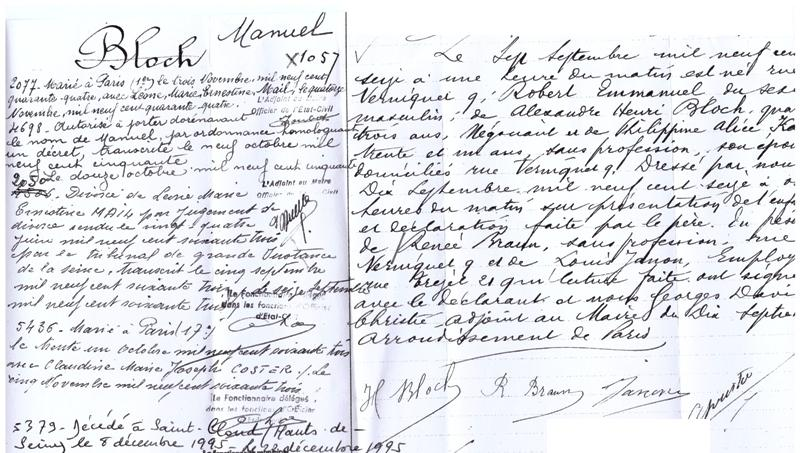 Bloch
Manuel
x1057
2077 Marié à Paris (1er) le trois Novembre, mil neuf cent
quarante-quatre, avec Léone, Marie, Ernestine, Mail, le quatorze
Novembre, mil neuf cent quarante quatre.
L'Adjoint au
Officier de l'Etat-Civil
4698 - Autorisé à porter dorénavant
le nom de Manuel, par ordonnance homologuant
un décret, transcrite le neuf octobre mil
neuf cent cinquante
Le douze octobre mil neuf cent cinquante
L'Adjoint au Maire
Civil
Divorcé de Léone Marie
Ernestine MAIL par Jugement de
divorce rendu le vingt quatre
Juin mil neuf cent soixante trois
par le tribunal de grande Instance
de la Seine, transcrit le cinq septembre
mil neuf cent soixante trois le seize septembre
mil neuf cent soixante trois
Le Fonctionnaire
dans les fonctions
d'Etat
5436 - Marié à Paris 17e
le trente un octobre mil neuf cent soixante trois
avec Claudine Marie Joseph COSTER ./. Le
cinq Novembre mil neuf cent soixante trois
Le Fonctionnaire délégué
dans les fonctions d'Officier
5379 - Décédé à Saint-Cloud, Hauts-de-
Seine, le 8 décembre 1995 - Le 22 décembre 1995
Le Sept Septembre mil neuf cent
seize à une heure du matin est né rue
Verniquet 9, Robert Emmanuel du sexe
masculin, de Alexandre Henri Bloch,
trois ans, Négociant et de Philippine Alice,
trente et un ans, sans profession, son épouse
domiciliés rue Verniquet 9. Dressé par nous
Dix Septembre, mil neuf cent seize à
heures du matin sur présentation de l'enfant
et déclaration faite par le père. En présence
de Renée Braun, sans profession, rue
Verniquet 9 et de Louis Janon, Employé
rue qui lecture faite, ont signé
avec le déclarant et nous Georges
Christie adjoint au Maire du Dix Septième
arrondissement de Paris
H Bloch R. Braun Janon